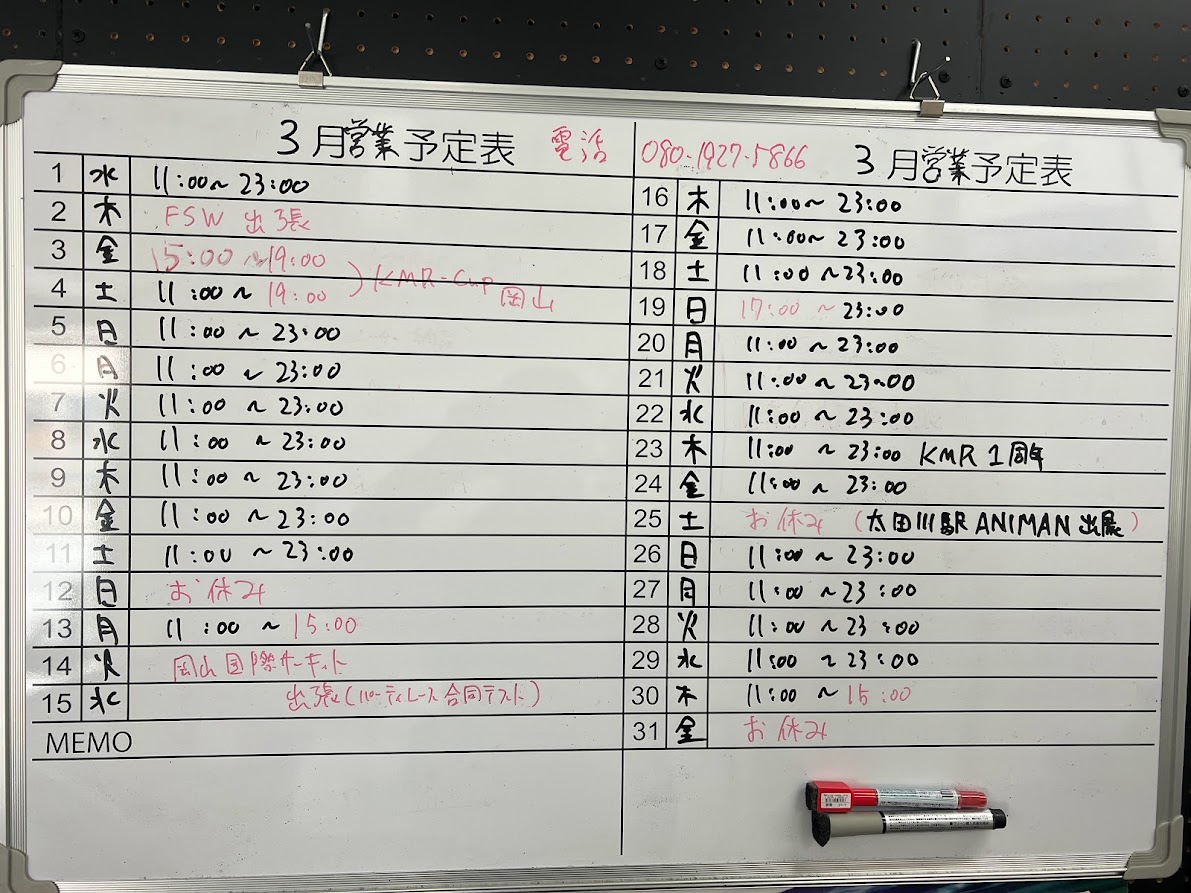 3月営業予定表 電話 080-1927-5866
1 水 11:00~23:00
2 木 FSW 出張
3 金 15:00~19:00
4 土 11:00~19:00 ) KMR-Cup 岡山
5 日 11:00~23:00
6 月 11:00~23:00
7 火 11:00~23:00
8 水 11:00~23:00
9 木 11:00~23:00
10 金 11:00~23:00
11 土 11:00~23:00
12 日 お休み
13 月 11:00~15:00
14 火 岡山国際サーキット
15 水 出張(パーティレース合同テスト)
MEMO
3月営業予定表
16 木 11:00~23:00
17 金 11:00~23:00
18 土 11:00~23:00
19 日 17:00~23:00
20 月 11:00~23:00
21 火 11:00~23:00
22 水 11:00~23:00
23 木 11:00~23:00 KMR 1周年
24 金 11:00~23:00
25 土 お休み (太田川駅 ANIMAN 出展)
26 日 11:00~23:00
27 月 11:00~23:00
28 火 11:00~23:00
29 水 11:00~23:00
30 木 11:00~15:00
31 金 お休み